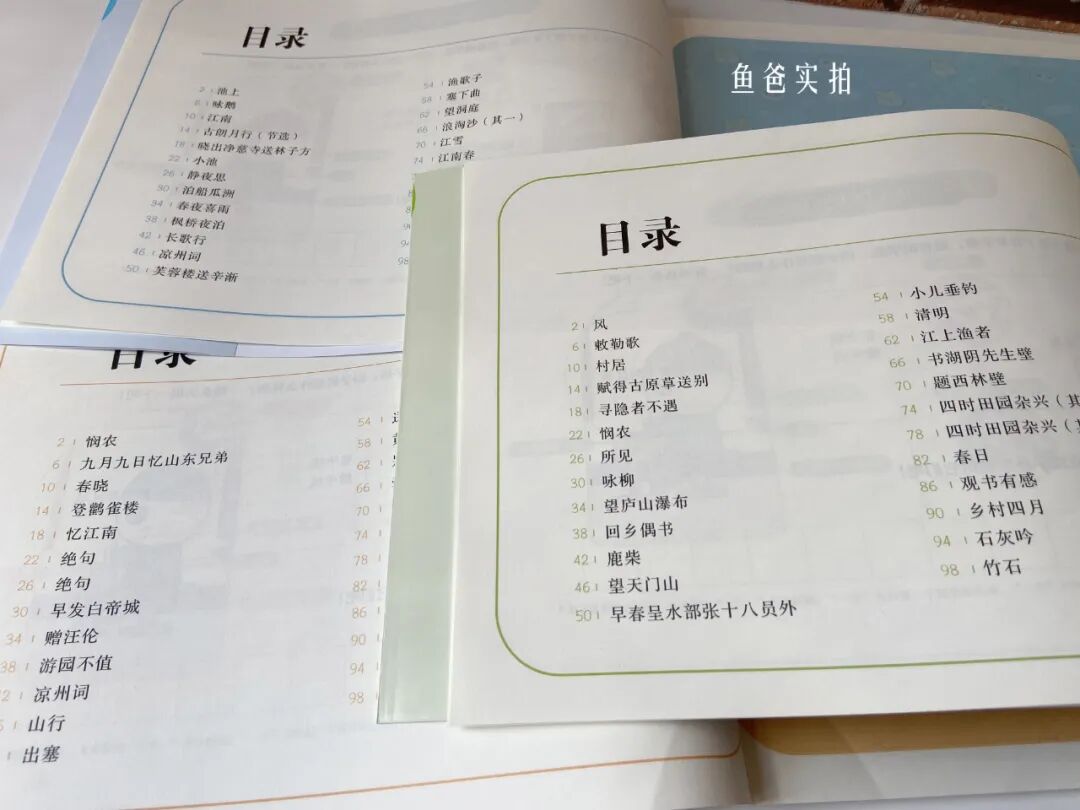 目录
2 池上
6 咏鹅
10 江南
14 古朗月行（节选）
18 晓出净慈寺送林子方
22 小池
26 静夜思
30 泊船瓜洲
34 春夜喜雨
38 枫桥夜泊
42 长歌行
46 凉州词
50 芙蓉楼送辛渐
54 渔歌子
58 塞下曲
62 望洞庭
66 浪淘沙（其一）
70 江雪
74 江南春
98
鱼爸实拍
目录
2 风
6 敕勒歌
10 村居
14 赋得古原草送别
18 寻隐者不遇
22 悯农
26 所见
30 咏柳
34 望庐山瀑布
38 回乡偶书
42 鹿柴
46 望天门山
50 早春呈水部张十八员外
54 小儿垂钓
58 清明
62 江上渔者
66 书湖阴先生壁
70 题西林壁
74 四时田园杂兴（其
78 四时田园杂兴（其
82 春日
86 观书有感
90 乡村四月
94 石灰吟
98 竹石
目录
2 悯农
6 九月九日忆山东兄弟
10 春晓
14 登鹳雀楼
18 忆江南
22 绝句
26 绝句
30 早发白帝城
34 赠汪伦
38 游园不值
2 凉州词
山行
出塞
54
58
62
66
70
74
78
82
86
90
94
98